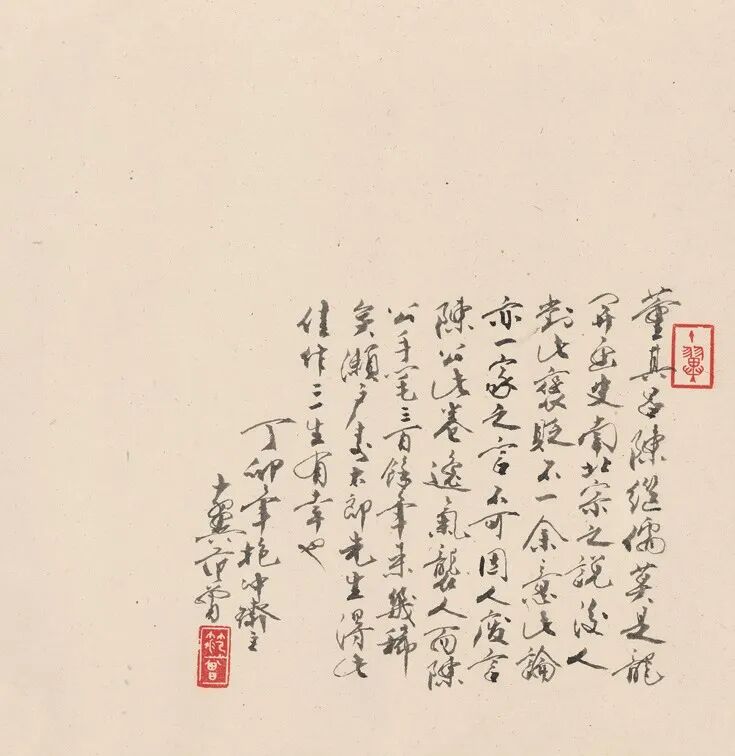 董其昌陳继儒莫是龍
開画史南北宗之説後人
對此褒貶不一余意此論
亦一家之言不可因人廢言
陳公此卷逸氣襲人而陳
公手笔三百餘年来幾稀
矣瀬戸青太郎先生得此
佳作三生有幸也
丁卯年抱冲齋主
十翼范曾
十翼
范曾